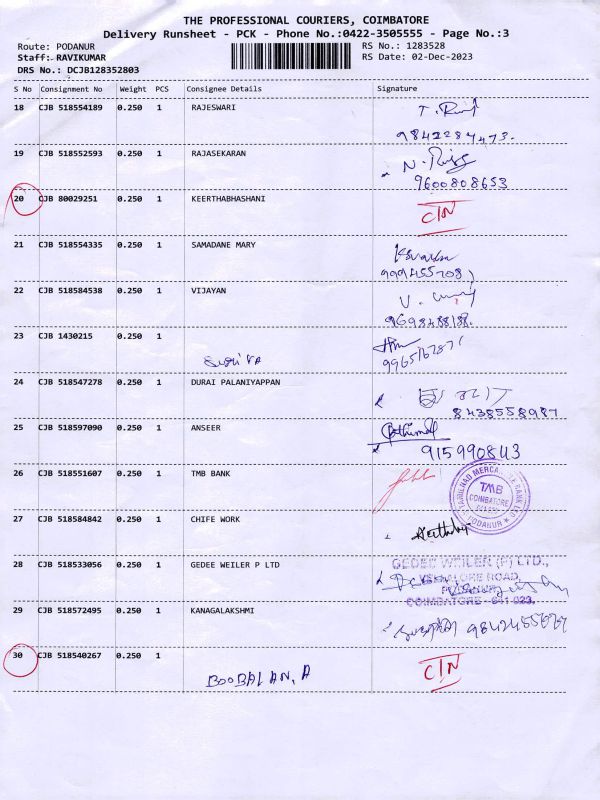 THE PROFESSIONAL COURIERS, COIMBATORE
Delivery Runsheet - PCK - Phone No.:0422-3505555 - Page No.:3
Route: PODANUR RS No.: 1283528
Staff: RAVIKUMAR RS Date: 02-Dec-2023
DRS No.: DCJB128352803
S No Consignment No Weight PCS Consignee Details Signature
18 CJB 518554189 0.250 1 RAJESWARI
9842284473.
19 CJB 518552593 0.250 1 RAJASEKARAN
9600808653
20 CJB 80029251 0.250 1 KEERTHABHASHANI CIN
21 CJB 518554335 0.250 1 SAMADANE MARY
22 CJB 518584538 0.250 1 VIJAYAN
23 CJB 1430215 0.250 1
24 CJB 518547278 0.250 1 DURAI PALANIYAPPAN
8438558987
25 CJB 518597090 0.250 1 ANSEER
26 CJB 518551607 0.250 1 TMB BANK
TAMILNAD MERCANTILE BANK LTD
TMB
COIMBATORE
PODANUR
27 CJB 518584842 0.250 1 CHIFE WORK
28 CJB 518533056 0.250 1 GEDEE WEILER P LTD
GEDEE WEILER (P) LTD.,
ROAD,
COIMBATORE - 641 023.
29 CJB 518572495 0.250 1 KANAGALAKSHMI
30 CJB 518540267 0.250 1 CIN
BOOBALAN, A